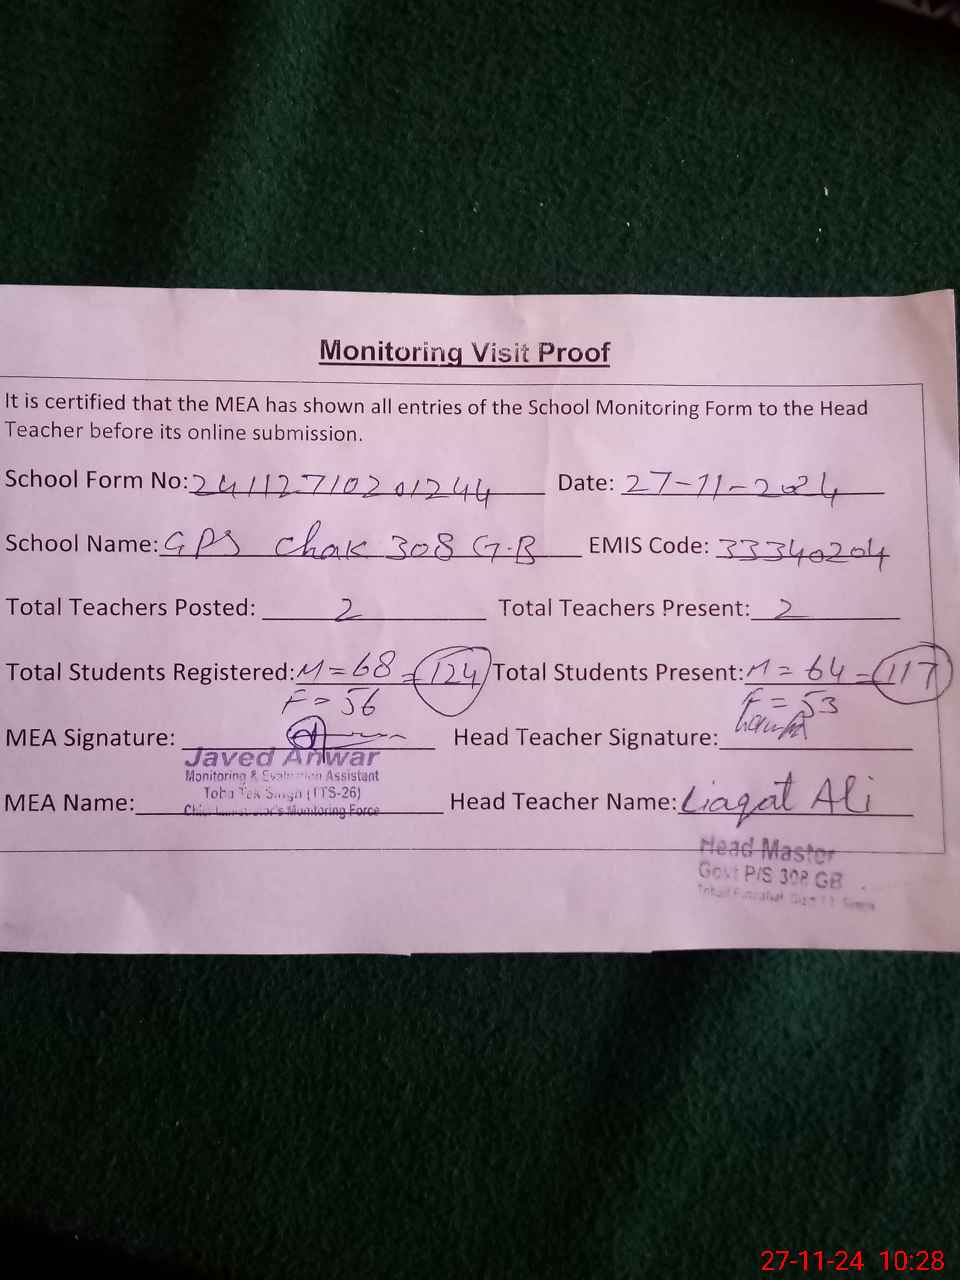 Monitoring Visit Proof
It is certified that the MEA has shown all entries of the School Monitoring Form to the Head
Teacher before its online submission.
School Form No: 24112710201244 Date: 27-11-2024
School Name: GPS Chak 308 G.B EMIS Code: 33340204
Total Teachers Posted: 2 Total Teachers Present: 2
Total Students Registered: M = 68 = 124 Total Students Present: M = 64 = 117
F = 56 F = 53
MEA Signature: Head Teacher Signature:
Javed Anwar
Monitoring & Evaluation Assistant
Toba Tek Singh (TTS-26)
MEA Name: Head Teacher Name: Liaqat Ali
Monitoring Force
Head Master
Govt P/S 308 GB
27-11-24 10:28